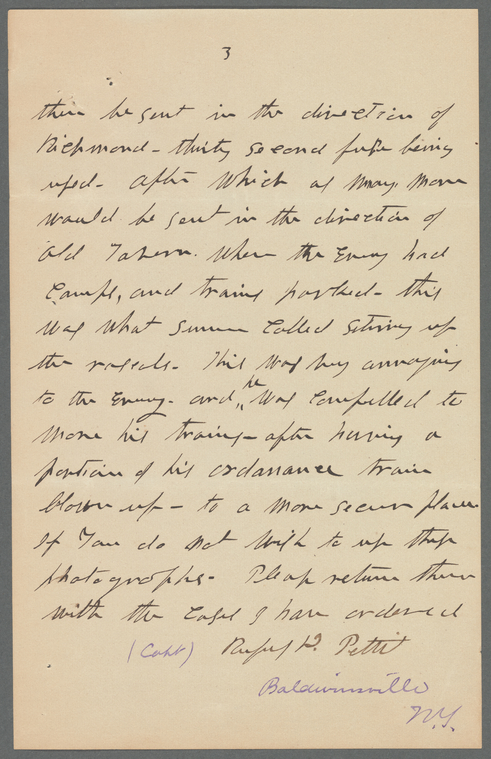 3
then be sent in the direction of
Richmond - thirty second fuse being
used - after which as many more
would be sent in the direction of
Old Tavern. Where the Enemy had
Camps, and trains parked - this
was what Sumner Called Stiring up
the rascals - This was very annoying
to the Enemy - and he was Compelled to
move his trains - after having a
portion of his ordanance train
blown up - to a more secure place
If You do not Wish to use these
photographs - Please return them
with the Cases I have ordered
(Capt) Rufus D. Pettit
Baldwinsville
N.Y.